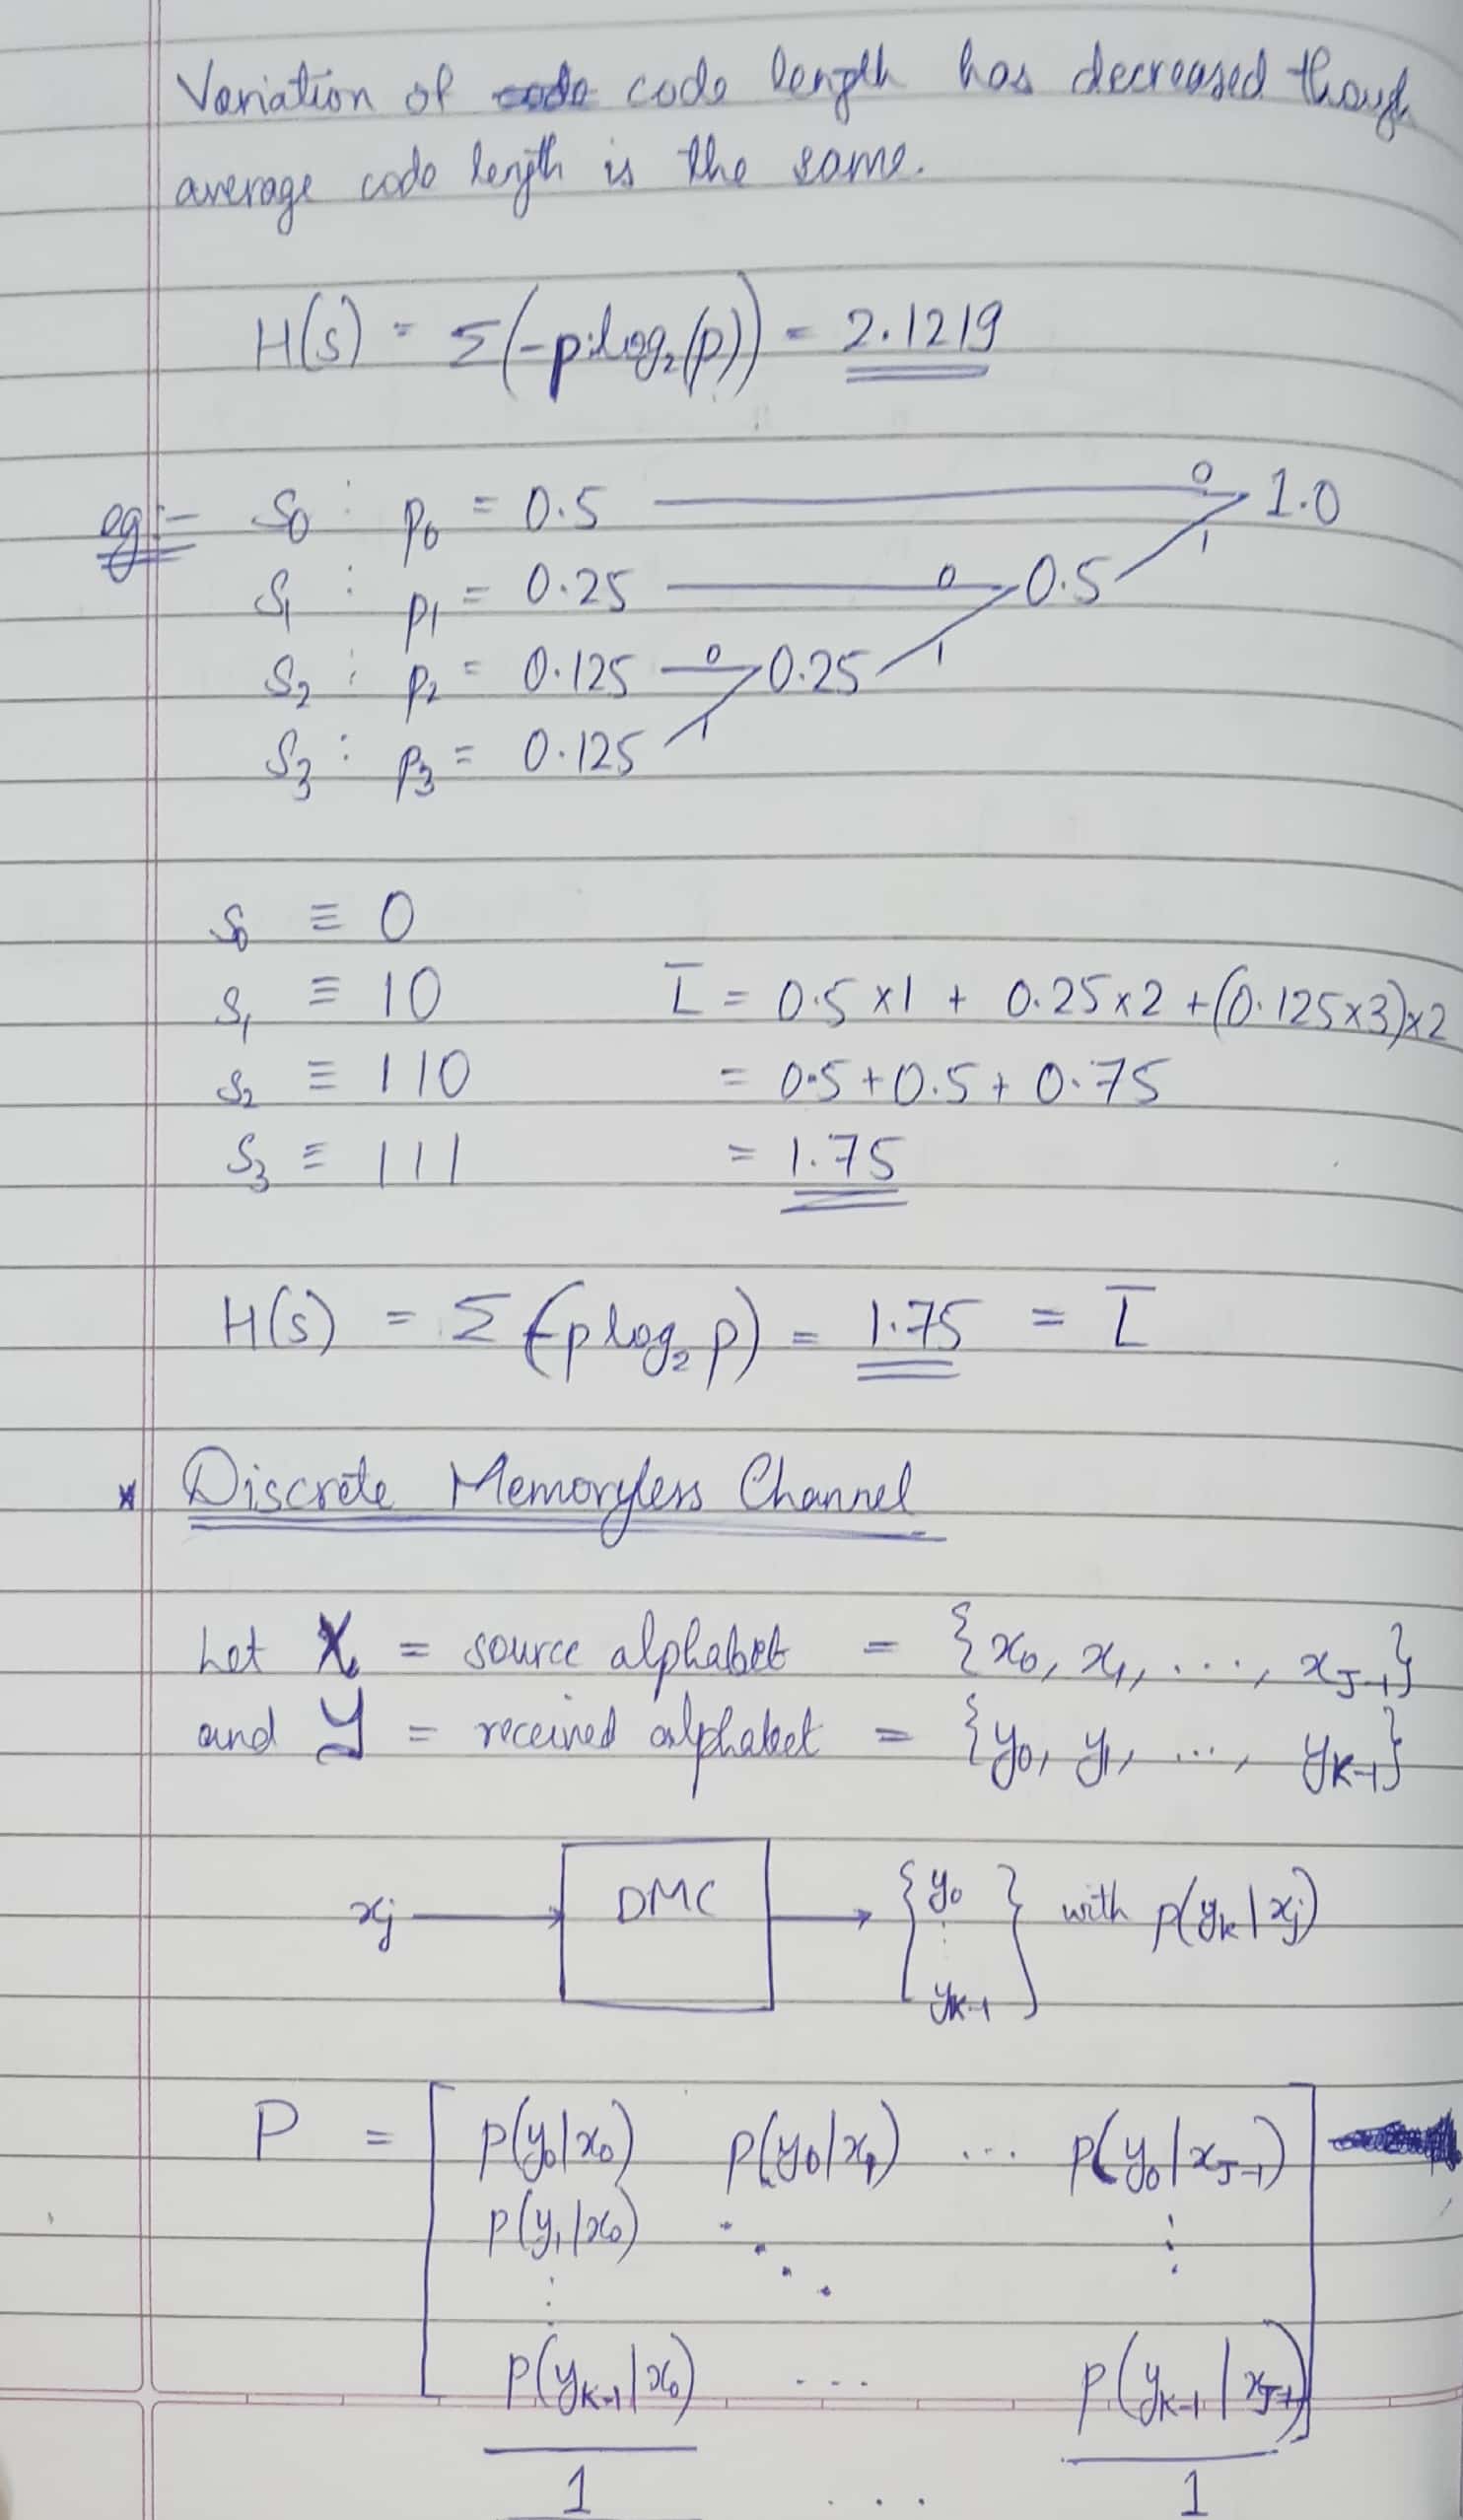 Variation of code code length has decreased though
average code length is the same.
H(s) = Σ(-p·log₂(p)) = 2.1219
eg:- S₀ : p₀ = 0.5 0 1.0
S₁ : p₁ = 0.25 0 0.5 1
S₂ : p₂ = 0.125 0 0.25 1
S₃ : p₃ = 0.125 1
S₀ ≡ 0
S₁ ≡ 10 L̄ = 0.5 x 1 + 0.25 x 2 + (0.125 x 3) x 2
S₂ ≡ 110 = 0.5 + 0.5 + 0.75
S₃ ≡ 111 = 1.75
H(s) = Σ (-p log₂ p) = 1.75 = L̄
* Discrete Memoryless Channel
Let X = source alphabet = {x₀, x₁, ..., x_J-1}
and Y = received alphabet = {y₀, y₁, ..., y_K-1}
x_j → DMC → { y₀ ⋮ y_K-1 } with p(y_k | x_j)
P = [ p(y₀|x₀) p(y₀|x₁) ... p(y₀|x_J-1) ]
p(y₁|x₀) ⋱ ⋮
⋮
p(y_K-1|x₀) ... p(y_K-1|x_J-1)
1 ... 1